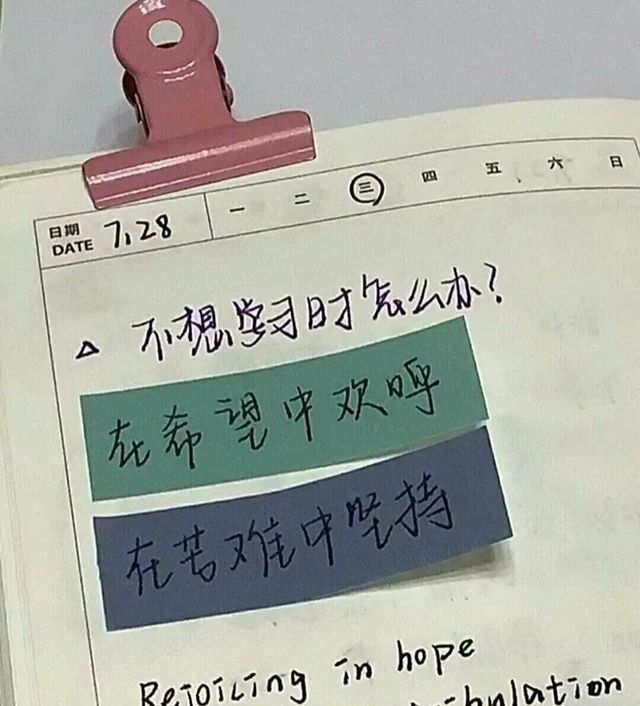 日期 一 二 三 四 五 六 日
DATE 7.28
△ 不想学习时怎么办？
在希望中欢呼
在苦难中坚持
Rejoicing in hope